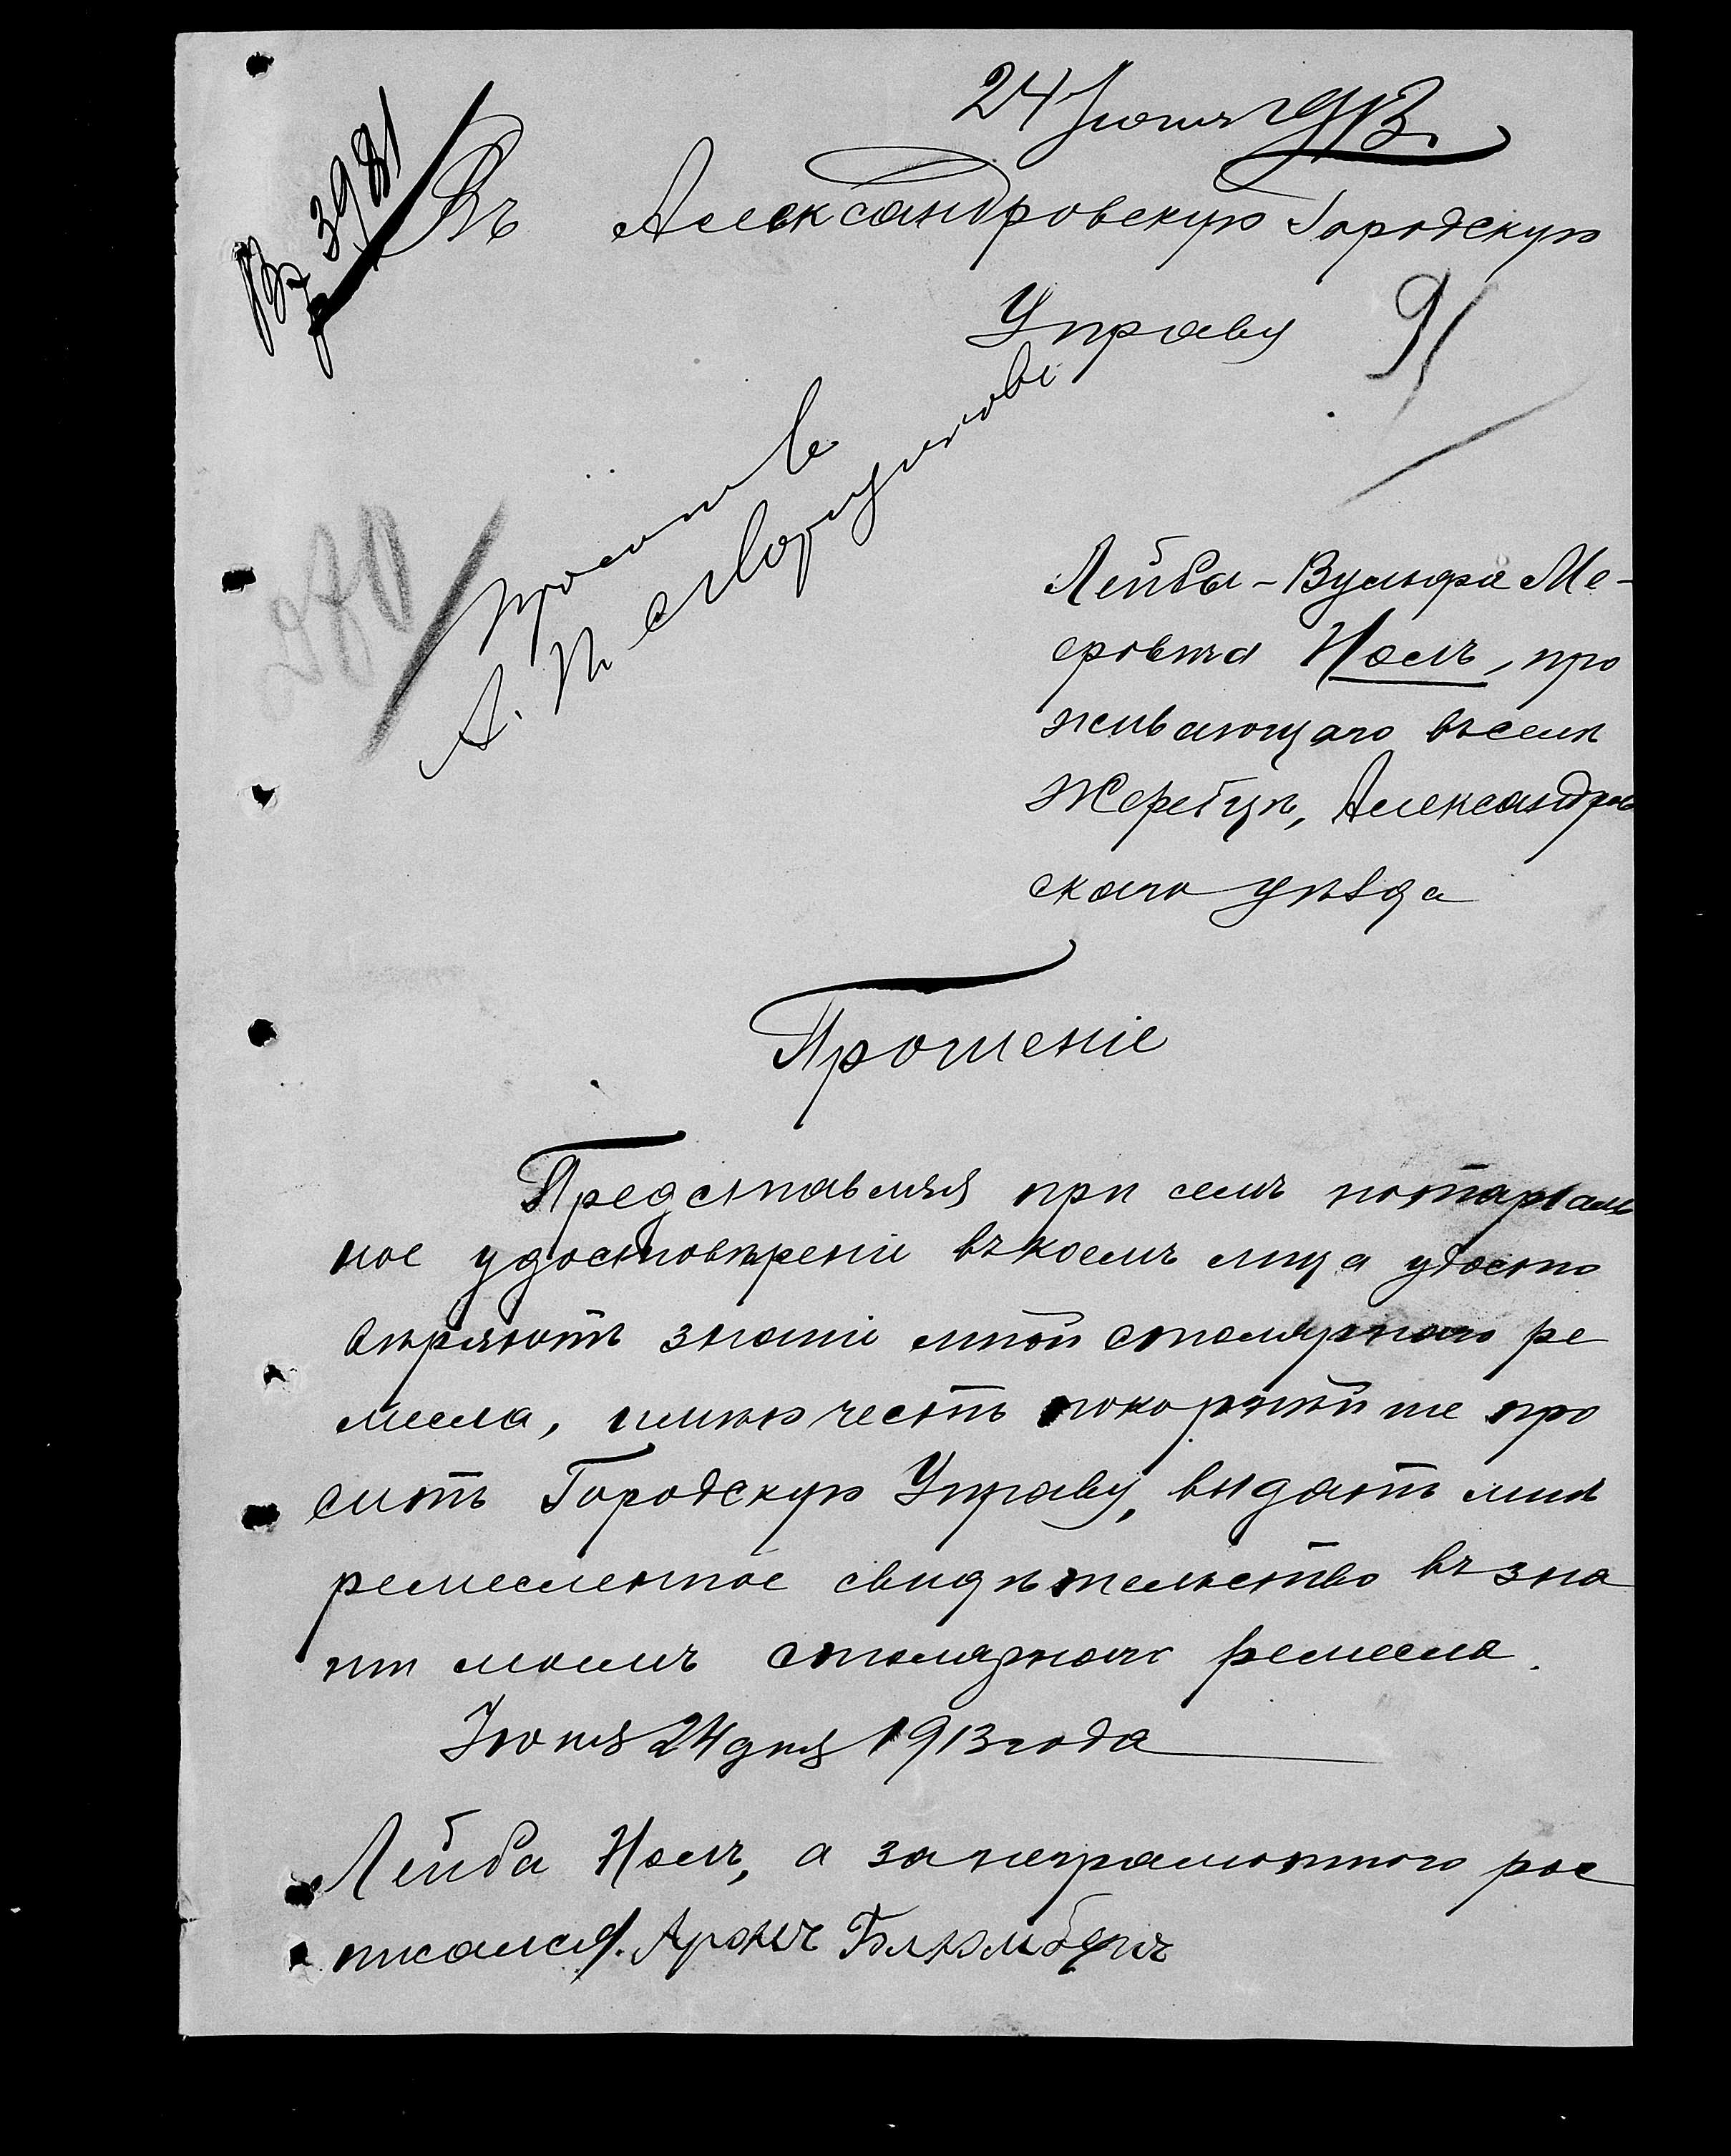 24 Іюня 1913.
Вх 3981
Въ Александровскую Городскую
Управу
91
А. П.
Лейбы-Вульфа Ме-
еровича Ноль, про
живающаго въ селѣ
Жеребцѣ, Александров
скаго уѣзда
Прошеніе
Представляя при семъ нотаріаль
ное удостовѣреніе въ коемъ лица удосто
вѣряютъ знаніе мной столярнаго ре
месла, имѣю честь покорнѣйше про
сить Городскую Управу, выдать мнѣ
ремесленное свидѣтельство въ зна
ніи моемъ столярнаго ремесла.
Іюня 24 дня 1913 года
Лейба Ноль, а за неграмотного рос
писался. Аронъ Блюмбергъ